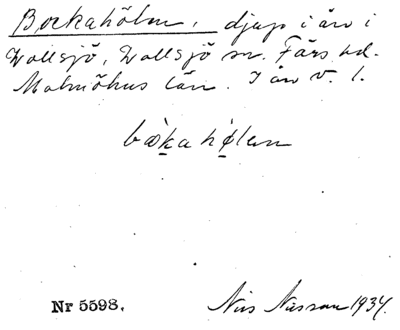 Bockahölm, djup i ån i
Vollsjö, Vollsjö sn. Färs hd.
Malmöhus län. I ån v. 1.
bòka hølen
Nr 5598. Nils Nilsson 1934.